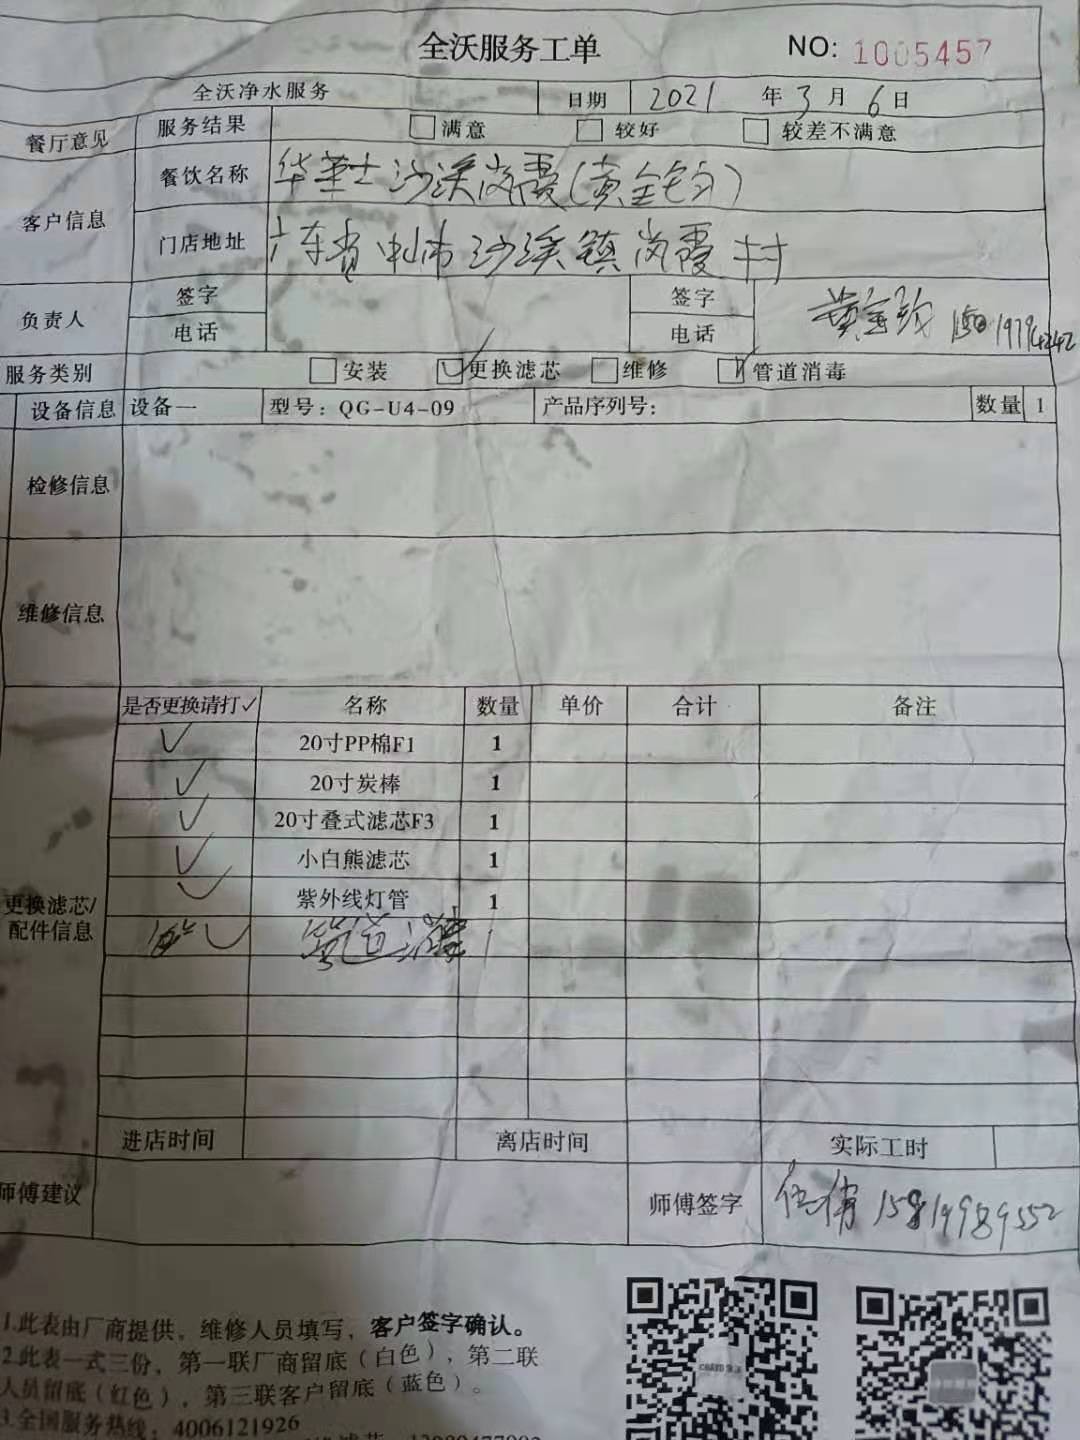 全沃服务工单 NO: 1005457
全沃净水服务 日期 2021 年 3 月 6 日
餐厅意见 服务结果 满意 较好 较差不满意
客户信息
餐饮名称 华莱士沙溪岗霞(黄金钧)
门店地址 广东省中山市沙溪镇岗霞村
负责人
签字 签字
电话 电话
服务类别 安装 ✓更换滤芯 维修 ✓管道消毒
设备信息 设备一 型号：QG-U4-09 产品序列号： 数量 1
检修信息
维修信息
是否更换请打✓ 名称 数量 单价 合计 备注
✓ 20寸PP棉F1 1
✓ 20寸炭棒 1
✓ 20寸叠式滤芯F3 1
✓ 小白熊滤芯 1
✓ 紫外线灯管 1
更换滤芯/
配件信息
✓ 管道消毒 1
进店时间 离店时间 实际工时
师傅建议 师傅签字 15819989552
1.此表由厂商提供，维修人员填写，客户签字确认。
2.此表一式三份，第一联厂商留底（白色），第二联
人员留底（红色），第三联客户留底（蓝色）。
3.全国服务热线：4006121926